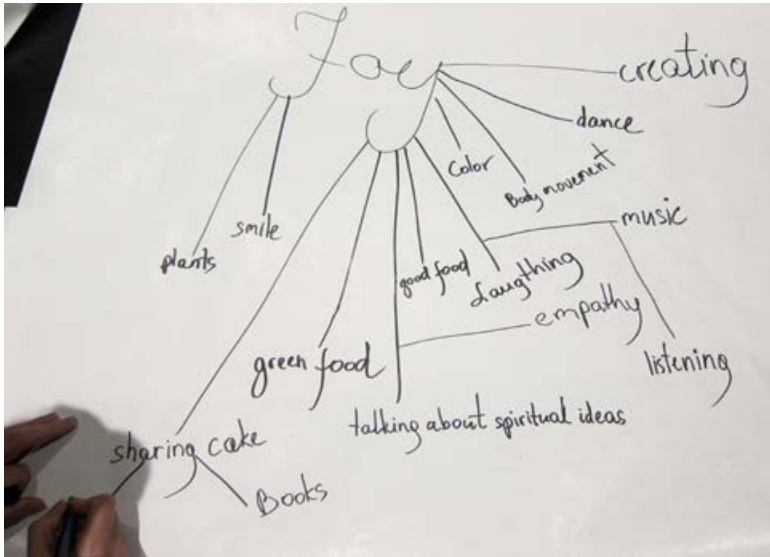 Joy
creating
dance
Body movement
Color
music
smile
plants
good food
Laugthing
empathy
listening
green food
talking about spiritual ideas
sharing cake
Books